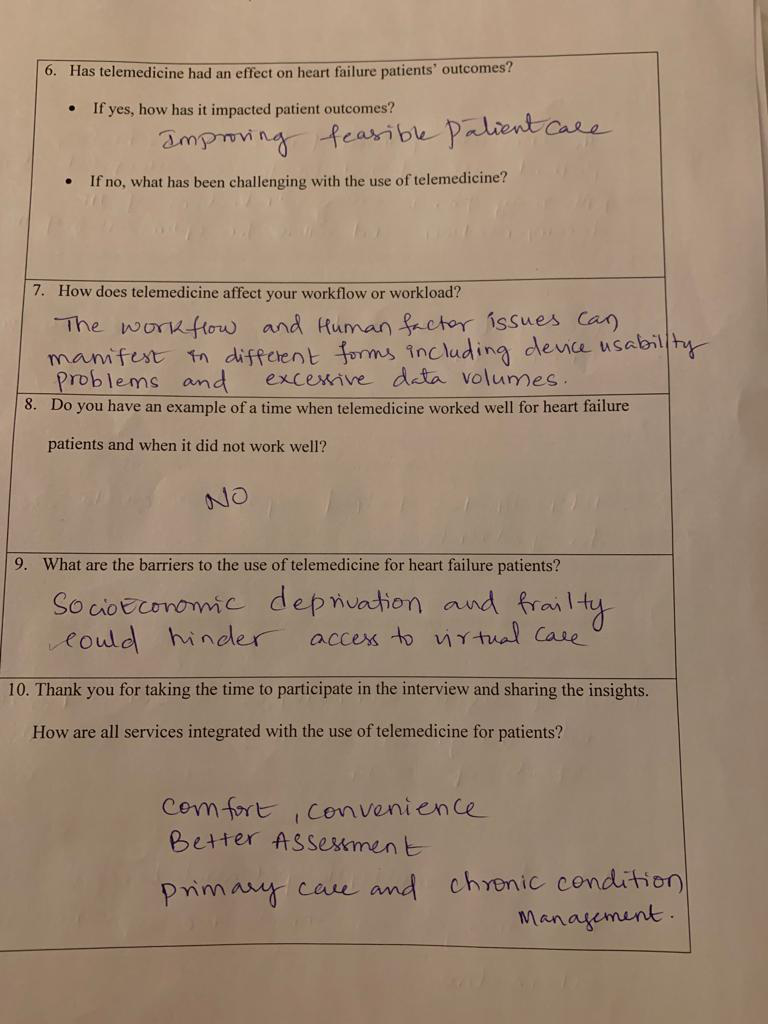 6. Has telemedicine had an effect on heart failure patients' outcomes?
• If yes, how has it impacted patient outcomes?
Improving feasible patient care
• If no, what has been challenging with the use of telemedicine?
7. How does telemedicine affect your workflow or workload?
The workflow and Human factor issues can
manifest in different forms including device usability
problems and excessive data volumes.
8. Do you have an example of a time when telemedicine worked well for heart failure
patients and when it did not work well?
NO
9. What are the barriers to the use of telemedicine for heart failure patients?
Socioeconomic deprivation and frailty
could hinder access to virtual care
10. Thank you for taking the time to participate in the interview and sharing the insights.
How are all services integrated with the use of telemedicine for patients?
Comfort, convenience
Better Assessment
primary care and chronic condition
Management.